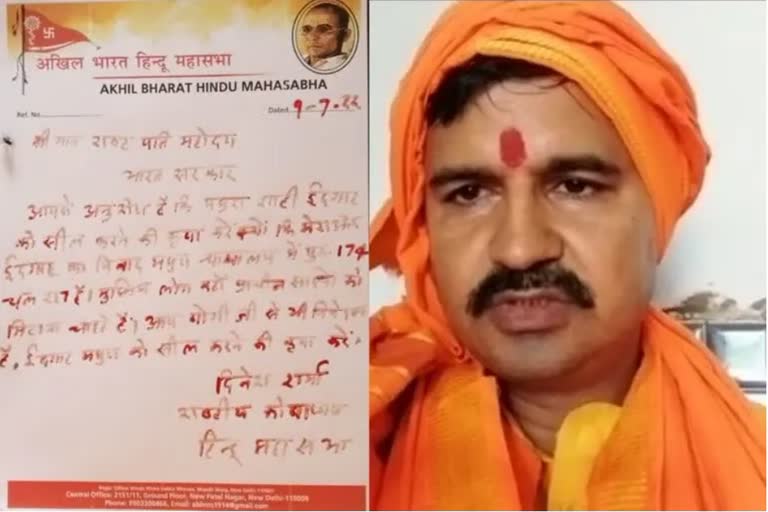 अखिल भारत हिन्दू महासभा
AKHIL BHARAT HINDU MAHASABHA
Ref. No.
Dated 9-7.22
श्री मान राष्ट्र पति महोदय
भारत सरकार
आपसे अनुरोध है कि मथुरा शाही ईदगाह
को सील करने की कृपा करें क्यों कि
ईदगाह का विवाद मथुरा न्यायालय में
चल रहा है। मुस्लिम लोग वहाँ प्राचीन साक्ष्यों को
मिटाना चाहते हैं। आप योगी जी से भी निवेदन
है, ईदगाह मथुरा को सील करने की कृपा करें।
दिनेश शर्मा
राष्ट्रीय कोषाध्यक्ष
हिन्दू महासभा
Central Office: 2151/11, Ground Floor, New Patel Nagar, New Delhi-110008